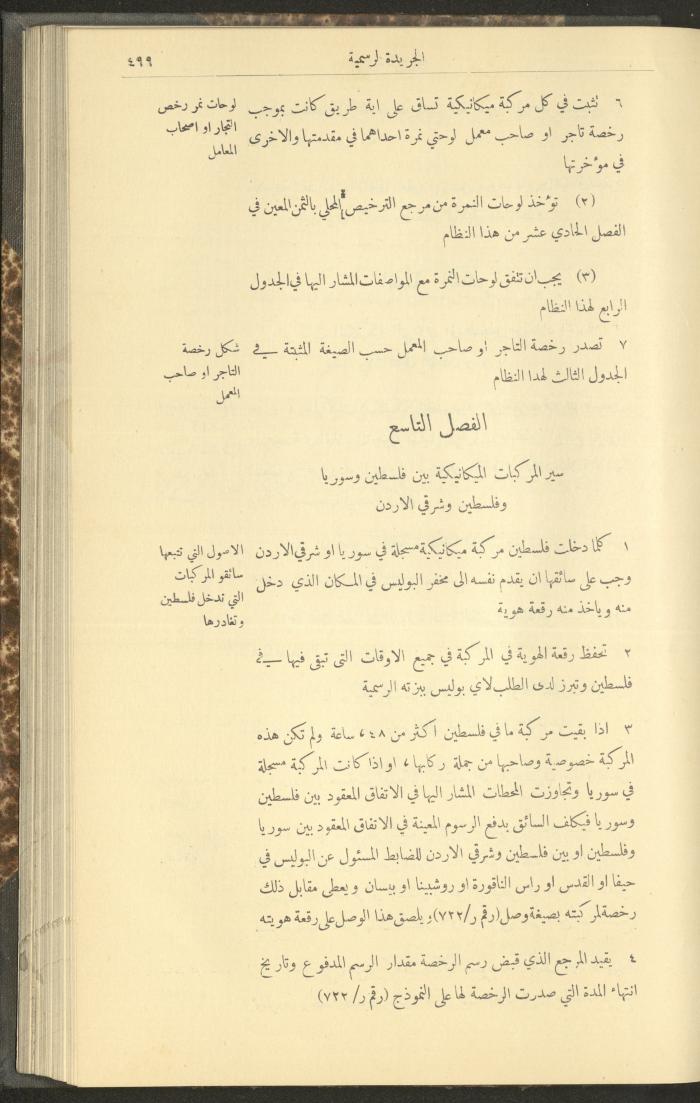 الجريدة لرسمية
٤٩٩
٦ تثبت في كل مركبة ميكانيكية تساق على اية طريق كانت بموجب
رخصة تاجر او صاحب معمل لوحتي نمرة احداهما في مقدمتها والاخرى
في مؤخرتها
لوحات نمر رخص
التجار او اصحاب
المعامل
(٢) تؤخذ لوحات النمرة من مرجع الترخيص المحلي بالثمن المعين في
الفصل الحادي عشر من هذا النظام
(٣) يجب ان تتفق لوحات النمرة مع المواصفات المشار اليها في الجدول
الرابع لهذا النظام
٧ تصدر رخصة التاجر او صاحب المعمل حسب الصيغة المثبتة في
الجدول الثالث لهدا النظام
شكل رخصة
التاجر او صاحب
المعمل
الفصل التاسع
سير المركبات الميكانيكية بين فلسطين وسوريا
وفلسطين وشرقي الاردن
١ كلما دخلت فلسطين مركبة ميكانيكية مسجلة في سوريا او شرقي الاردن
وجب على سائقها ان يقدم نفسه الى مخفر البوليس في المكان الذي دخل
منه وياخذ منه رقعة هوية
الاصول التي تتبعها
سائقو المركبات
التي تدخل فلسطين
وتغادرها
٢ تحفظ رقعة الهوية في المركبة في جميع الاوقات التى تبقى فيها في
فلسطين وتبرز لدى الطلب لاي بوليس ببزته الرسمية
٣ اذا بقيت مركبة ما في فلسطين اكثر من ٤٨، ساعة ولم تكن هذه
المركبة خصوصية وصاحبها من جملة ركابها، او اذا كانت المركبة مسجلة
في سوريا وتجاوزت المحطات المشار اليها في الاتفاق المعقود بين فلسطين
وسوريا فيكلف السائق بدفع الرسوم المعينة في الاتفاق المعقود بين سوريا
وفلسطين او بين فلسطين وشرقي الاردن للضابط المسئول عن البوليس في
حيفا او القدس او راس الناقورة او روشبينا او بيسان ويعطى مقابل ذلك
رخصة لمركبته بصيغة وصل (رقم ر/٧٢٢) ويلصق هذا الوصل على رقعة هويته
٤ يقيد المرجع الذي قبض رسم الرخصة مقدار الرسم المدفوع وتاريخ
انتهاء المدة التي صدرت الرخصة لها على النموذج (رقم ر/٧٢٢)